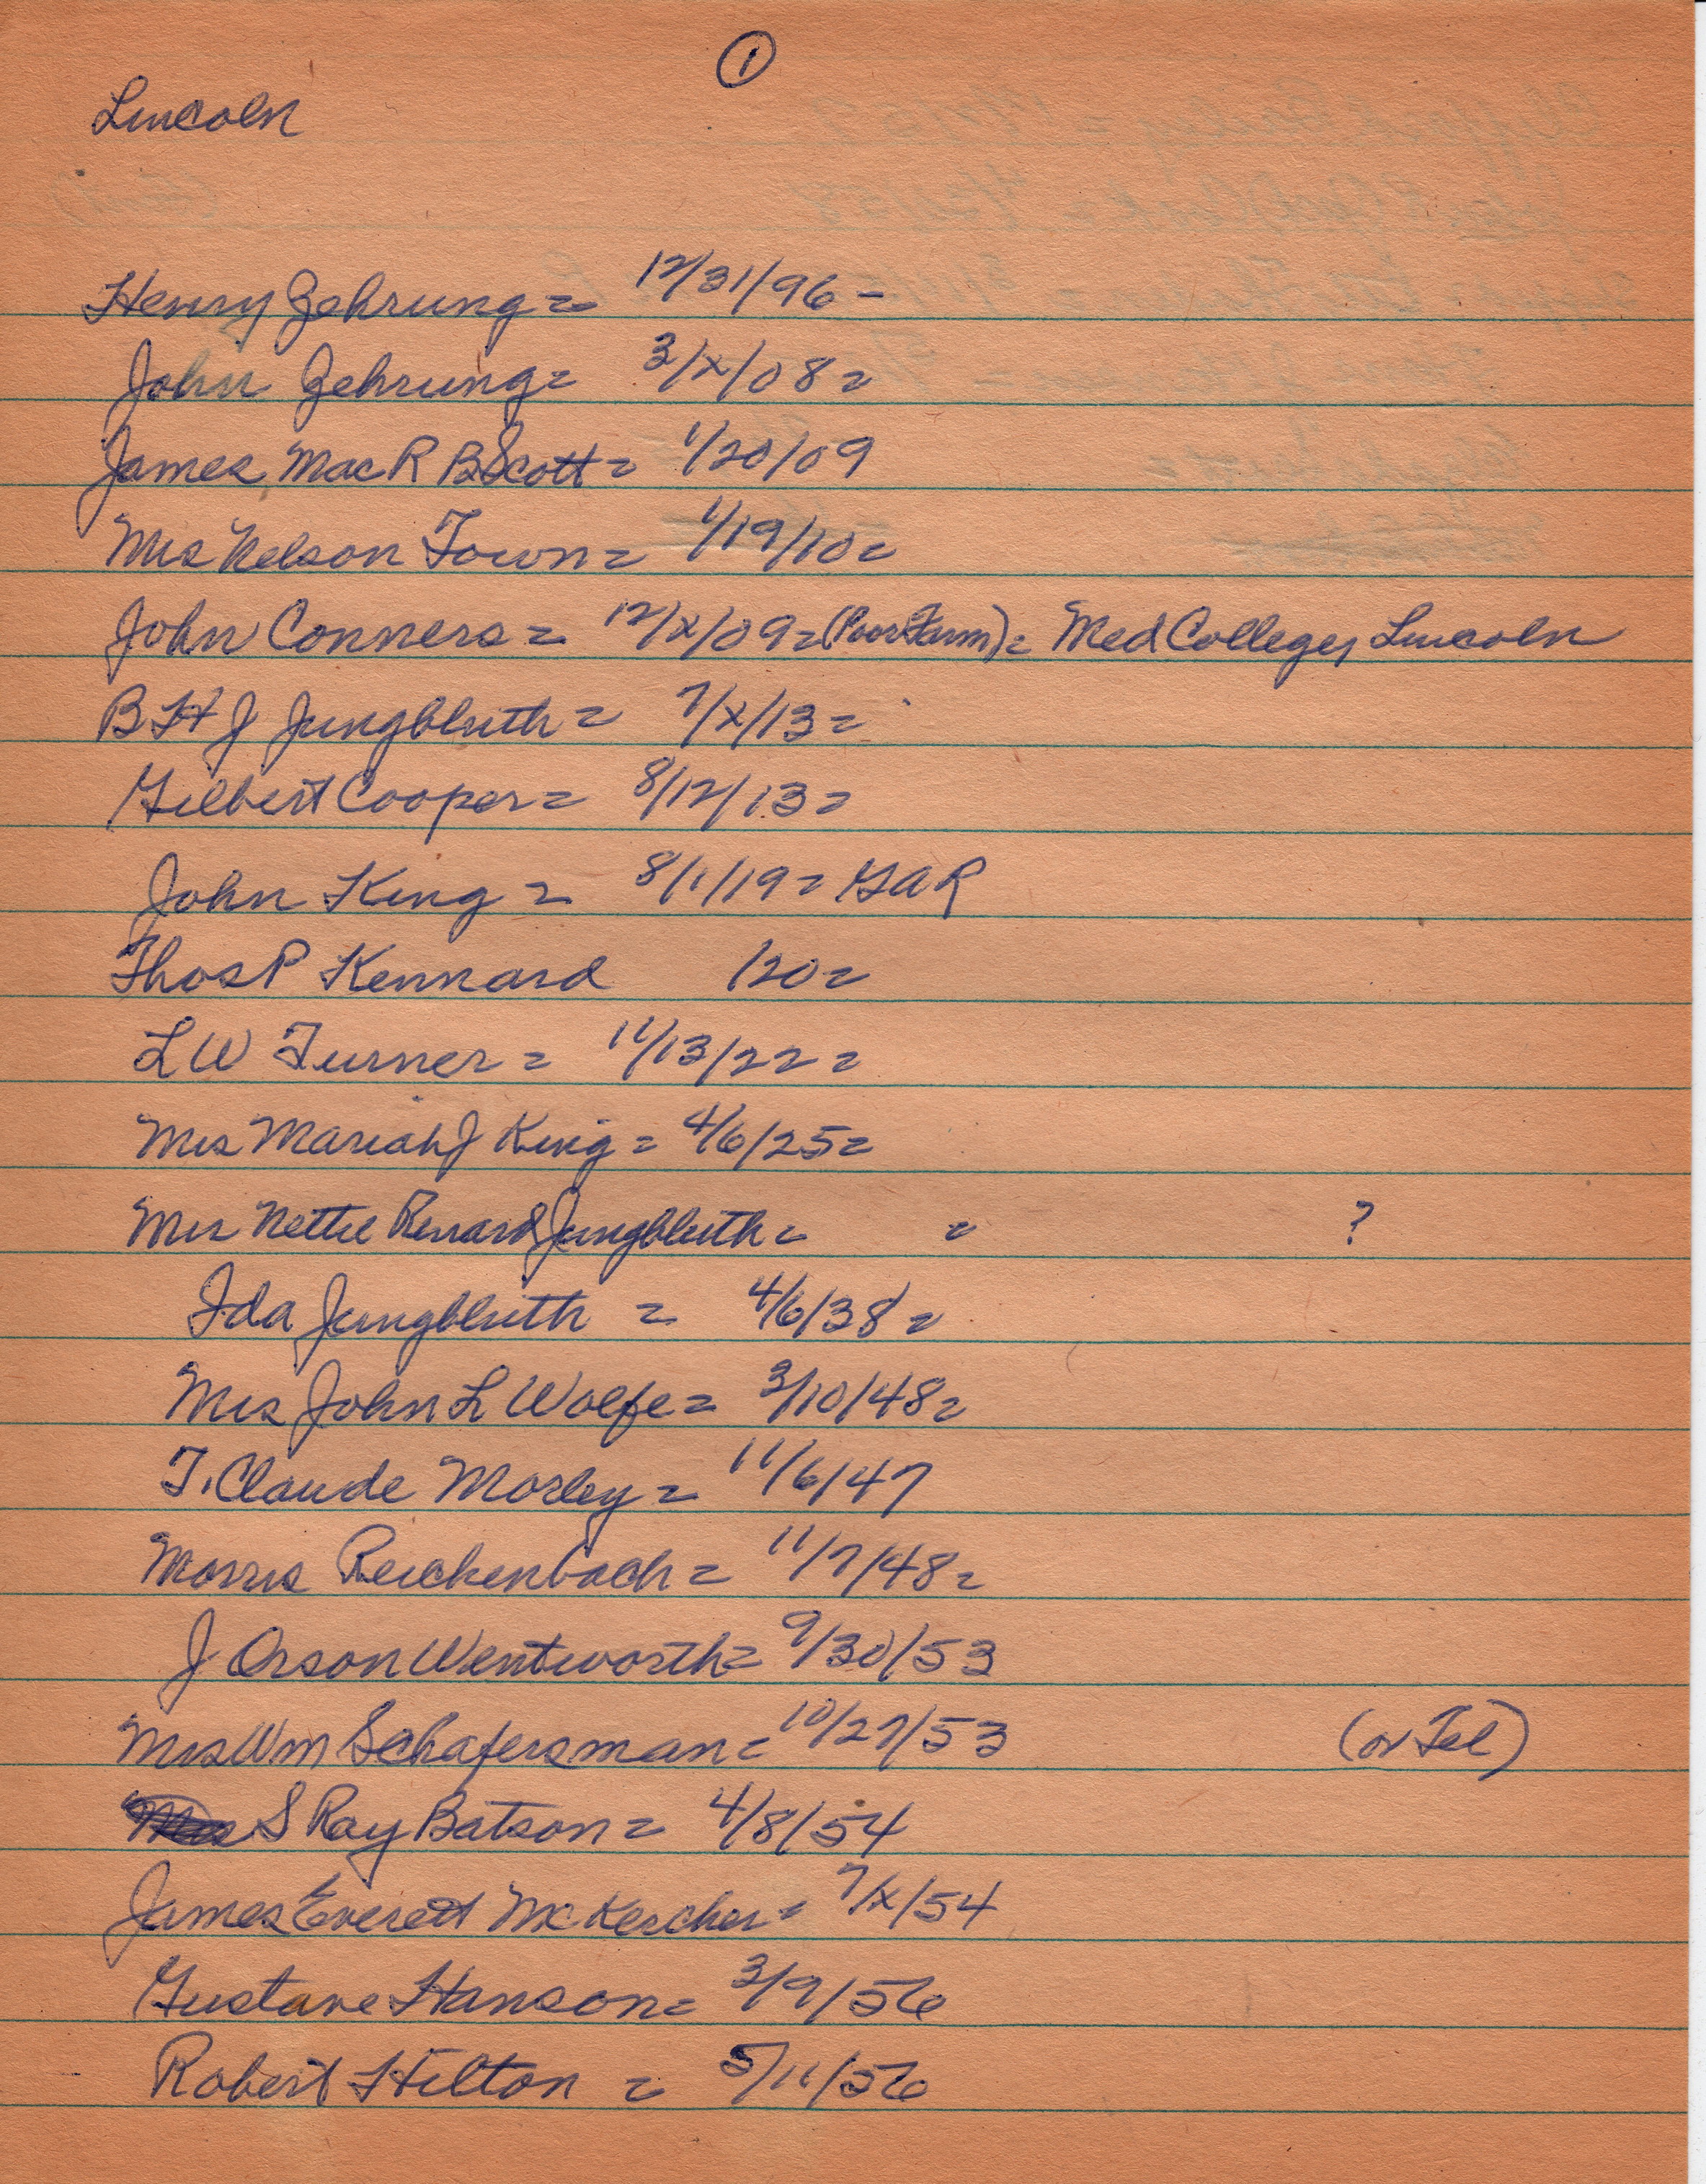 ①
Lincoln
Henry Zehrung = 12/31/96 -
John Zehrung = 3/x/08 =
James MacR B Scott = 1/20/09
Mrs Nelson Town = 1/19/10 =
John Conners = 12/x/09 = (Poor Farm) = Med College, Lincoln
B H J Jungbluth = 7/x/13 =
Gilbert Cooper = 8/12/13 =
John King = 8/1/19 = GAR
Thos P Kennard /20 =
L W Turner = 11/13/22 =
Mrs Mariah J King = 4/6/25 =
Mrs Nettie Renard Jungbluth = = ?
Ida Jungbluth = 4/6/38 =
Mrs John L Wolfe = 3/10/48 =
T. Claude Morley = 11/6/47
Morris Reichenbach = 11/7/48 =
J Orson Wentworth = 9/30/53
Mrs Wm Schafersman = 10/27/53 (or Tel)
S Ray Batson = 4/8/54
James Everett McKercher = 7/x/54
Gustave Hanson = 3/9/56
Robert Hilton = 5/11/56